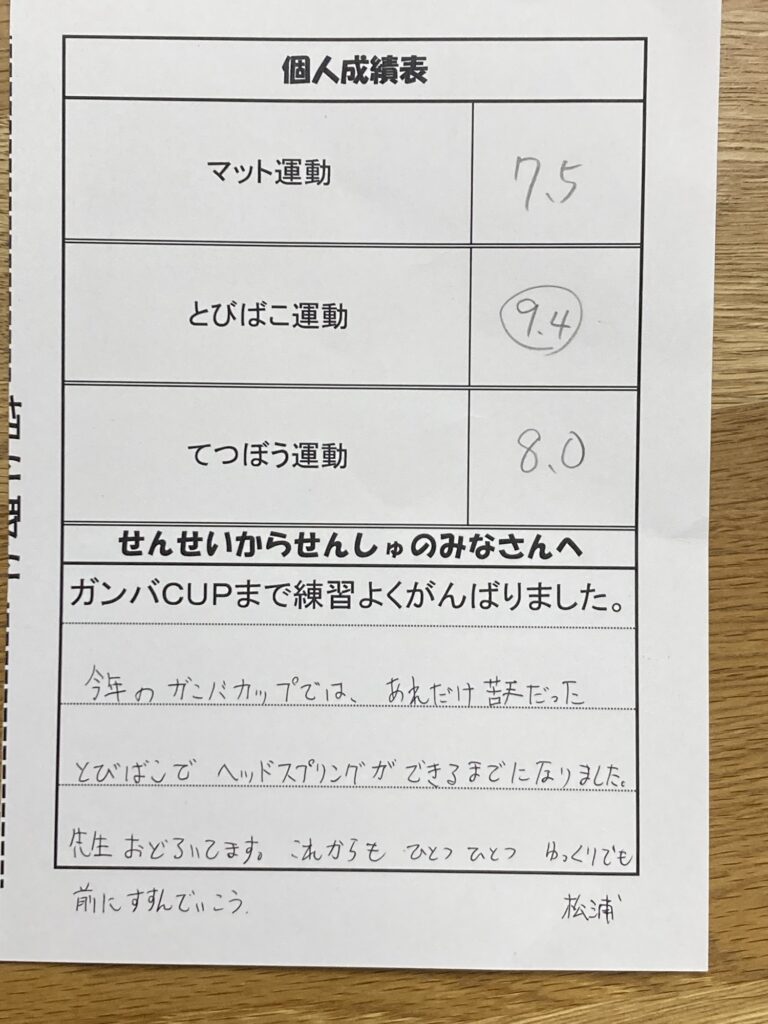 個人成績表
マット運動 7.5
とびばこ運動 9.4
てつぼう運動 8.0
せんせいからせんしゅのみなさんへ
ガンバCUPまで練習よくがんばりました。
今年のガンバカップでは、あれだけ苦手だった
とびばこでヘッドスプリングができるまでになりました。
先生おどろいてます。これからもひとつひとつゆっくりでも
前にすすんでいこう. 松浦